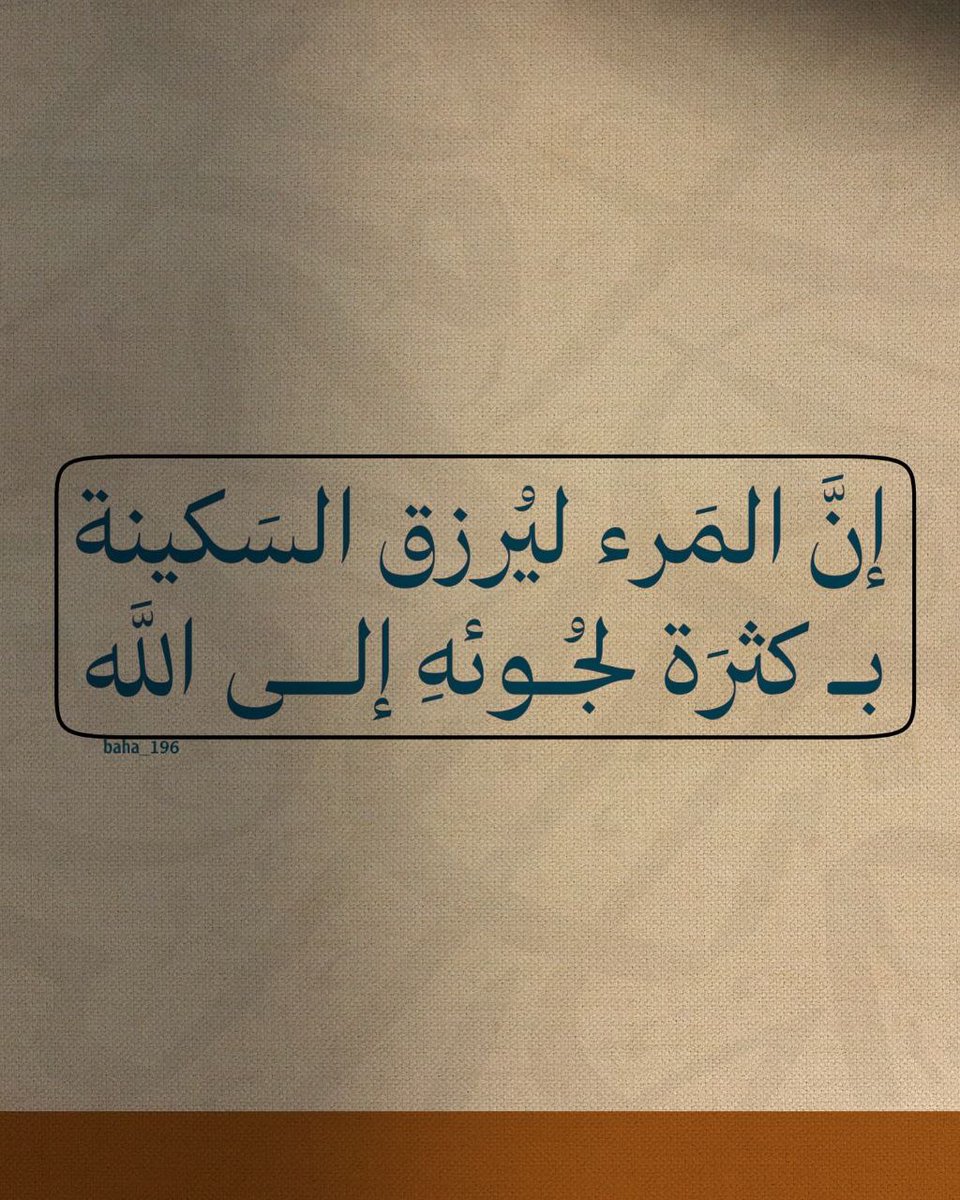 إنَّ المَرء ليُرزق السَكينة
بـ كثرَة لجُـوئهِ إلـــى اللَّه
baha_196